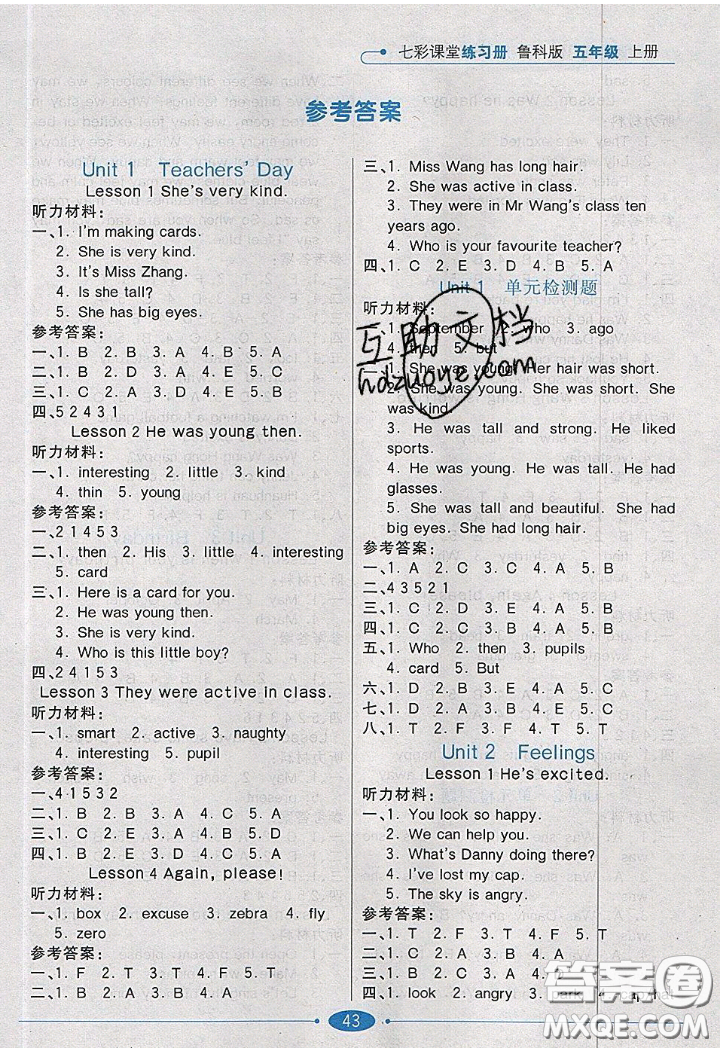 七彩课堂练习册 鲁科版 五年级 上册
参考答案
Unit 1 Teachers' Day
Lesson 1 She's very kind.
听力材料：
一、1. I'm making cards.
2. She is very kind.
3. It's Miss Zhang.
4. Is she tall?
5. She has big eyes.
参考答案：
一、1. B 2. B 3. A 4. B 5. A
二、1. B 2. D 3. A 4. E 5. C
三、1. C 2. B 3. A 4. D 5. A
四、5 2 4 3 1
Lesson 2 He was young then.
听力材料：
一、1. interesting 2. little 3. kind
4. thin 5. young
参考答案：
一、2 1 4 5 3
二、1. then 2. His 3. little 4. interesting
5. card
三、1. Here is a card for you.
2. He was young then.
3. She is very kind.
4. Who is this little boy?
四、2 4 1 5 3
Lesson 3 They were active in class.
听力材料：
一、1. smart 2. active 3. naughty
4. interesting 5. pupil
参考答案：
一、4 1 5 3 2
二、1. B 2. B 3. A 4. C 5. A
三、1. C 2. E 3. A 4. B 5. D
四、1. B 2. E 3. D 4. C 5. A
Lesson 4 Again, please!
听力材料：
一、1. box 2. excuse 3. zebra 4. fly
5. zero
参考答案：
一、1. F 2. T 3. T 4. F 5. T
二、1. B 2. A 3. C 4. A 5. B
三、1. Miss Wang has long hair.
2. She was active in class.
3. They were in Mr Wang's class ten
years ago.
4. Who is your favourite teacher?
四、1. C 2. E 3. D 4. B 5. A
Unit 1 单元检测题
听力材料：
一、1. September 2. who 3. ago
4. then 5. but
二、1. She was young. Her hair was short.
2. She was young. She was short. She
was kind.
3. He was tall and strong. He liked
sports.
4. He was young. He was tall. He had
glasses.
5. She was tall and beautiful. She had
big eyes. She had short hair.
参考答案：
一、1. A 2. C 3. C 4. A 5. B
二、4 3 5 2 1
三、1. C 2. C 3. B 4. A 5. B
四、1. C 2. C 3. B 4. B 5. C
五、1. Who 2. then 3. pupils
4. card 5. But
六、1. D 2. B 3. E 4. A 5. C
七、1. D 2. B 3. A 4. C 5. B
八、1. T 2. F 3. F 4. T 5. F
Unit 2 Feelings
Lesson 1 He's excited.
听力材料：
一、1. You look so happy.
2. We can help you.
3. What's Danny doing there?
4. I've lost my cap.
5. The sky is angry.
参考答案：
一、1. A 2. B 3. B 4. A 5. A
二、1. T 2. F 3. T 4. F 5. F
三、1. C 2. B 3. A 4. C 5. B
四、1. look 2. angry 3. park
43
互助文档
hdzuoye.com
答案圈
MXQE.COM